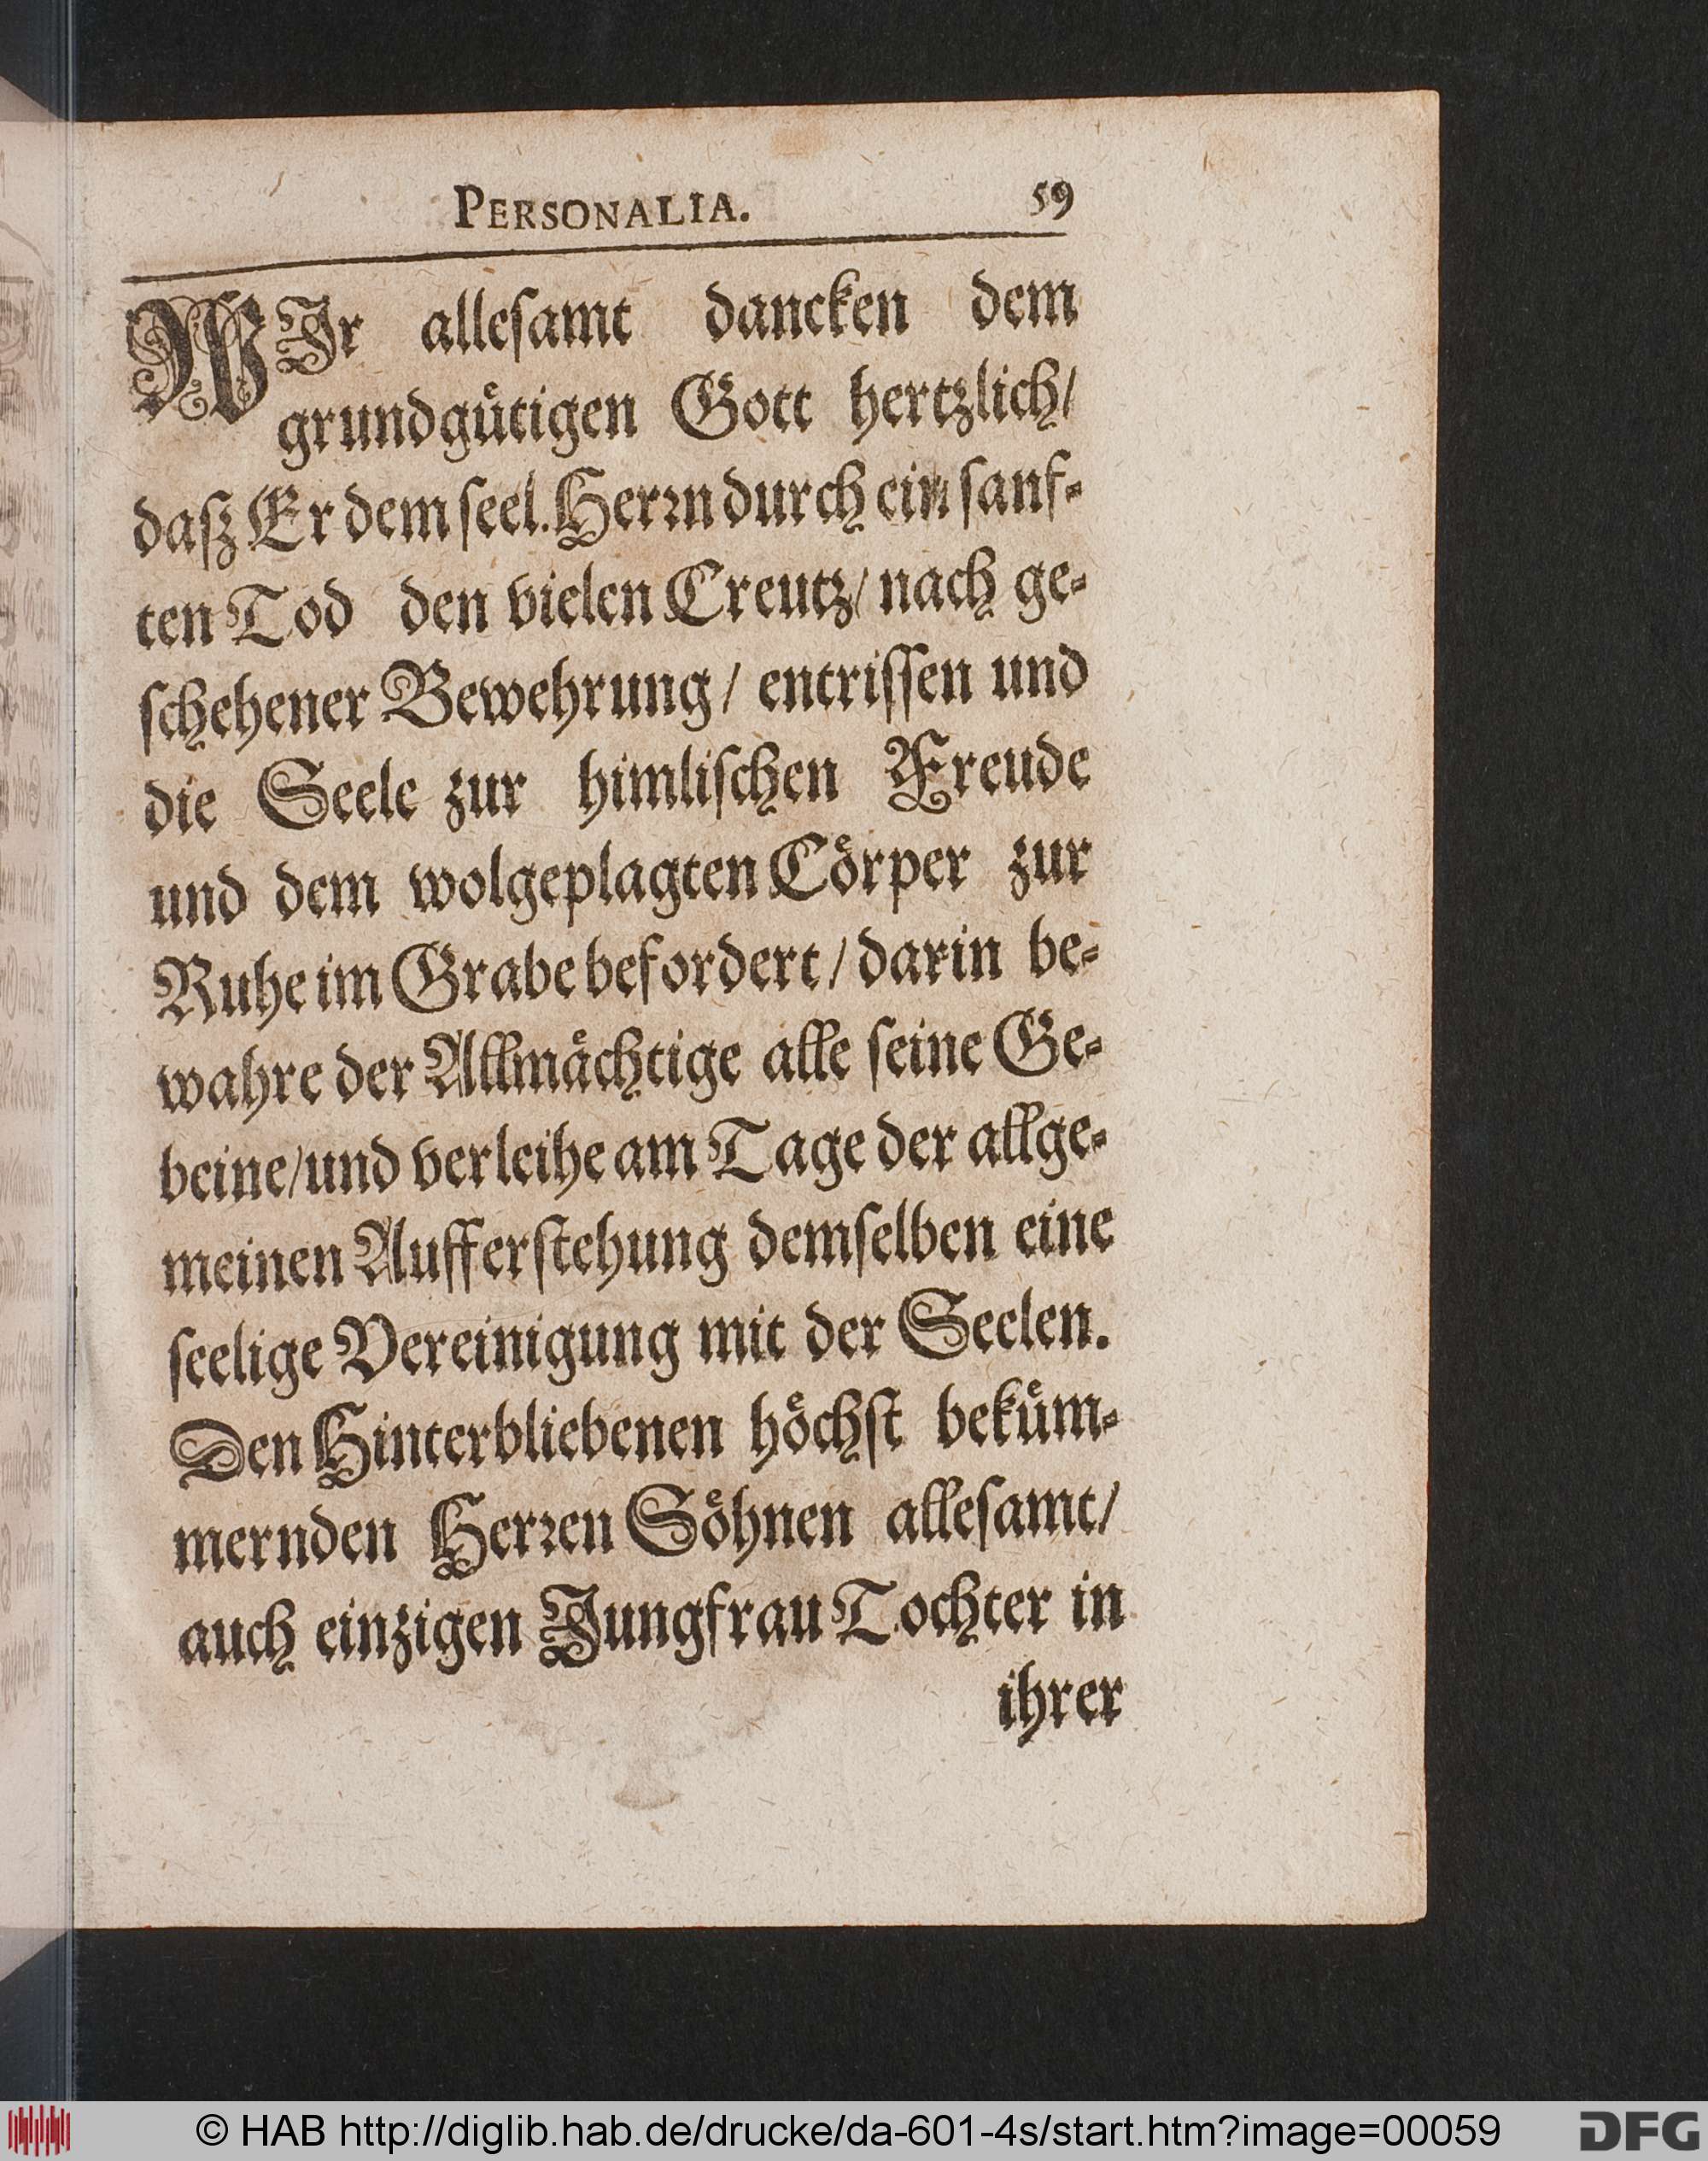 PERSONALIA. 59
WJr allesamt dancken dem
grundgütigen Gott hertzlich/
dasz Er dem seel. Herrn durch ein sanf-
ten Tod den vielen Creutz/ nach ge-
schehener Bewehrung/ entrissen und
die Seele zur himlischen Freude
und dem wolgeplagten Cörper zur
Ruhe im Grabe befordert/ darin be-
wahre der Allmächtige alle seine Ge-
beine/ und verleihe am Tage der allge-
meinen Aufferstehung demselben eine
seelige Vereinigung mit der Seelen.
Den Hinterbliebenen höchst beküm-
mernden Herren Söhnen allesamt/
auch einzigen Jungfrau Tochter in
ihrer
© HAB http://diglib.hab.de/drucke/da-601-4s/start.htm?image=00059 DFG